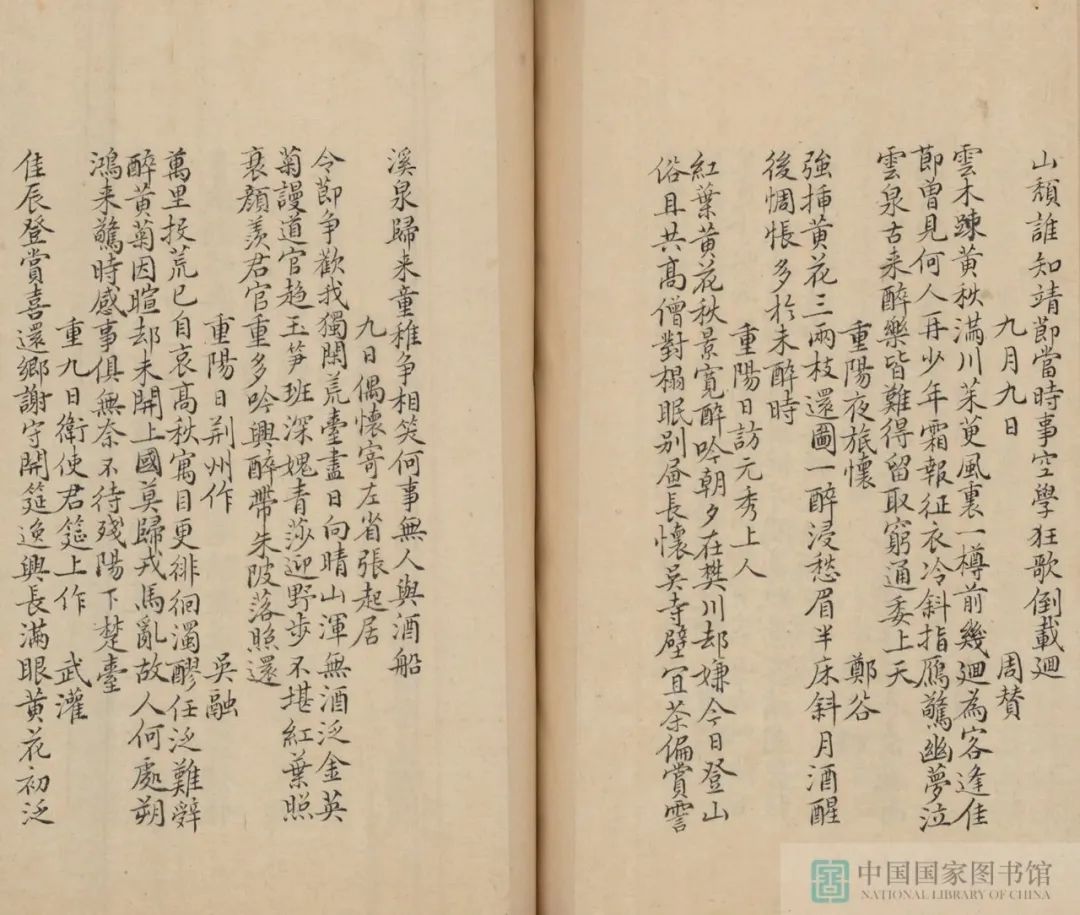 山頹誰知靖節當時事空學狂歌倒載廻
九月九日 周賛
雲木踈黄秋滿川茱萸風裏一樽前幾廻為客逢佳
節曾見何人再少年霜報征衣冷斜指鴈驚幽夢泣
雲泉古来醉樂皆難得留取窮通委上天
重陽夜旅懷 鄭谷
強揷黄花三兩枝還圖一醉浸愁眉半床斜月酒醒
後惆悵多於未醉時
重陽日訪元秀上人
紅葉黄花秋景寛醉吟朝夕在樊川却嫌今日登山
俗且共髙僧對榻眠别畫長懷吳寺壁宜茶偏賞霅
溪泉歸来童稚争相笑何事無人與酒船
九日偶懷寄左省張起居
令節争歡我獨閑荒臺盡日向晴山渾無酒泛金英
菊謾道官趋玉笋班深媿青莎迎野歩不堪紅葉照
衰顔羨君官重多吟興醉帶朱陂落照還
重陽日荆州作 吳融
萬里投荒已自哀髙秋寓目更徘徊濁醪任泛難辤
醉黄菊因暄却未開上國莫歸戎馬亂故人何處朔
鴻来驚時感事俱無奈不待殘陽下楚臺
重九日衛使君筵上作 武灌
佳辰登賞喜還鄉謝守開筵逸興長滿眼黄花初泛
中国国家图书馆
NATIONAL LIBRARY OF CHINA